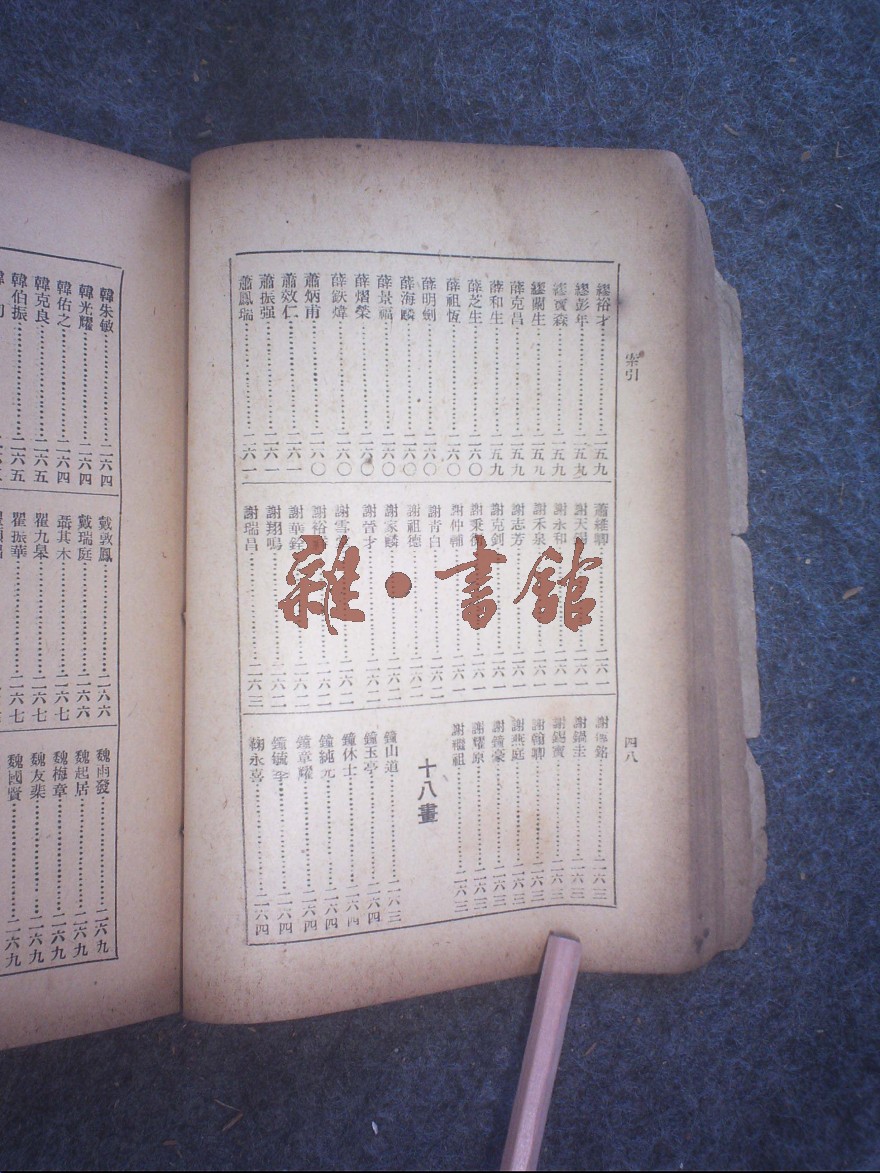 索引
四八
繆裕才⋯⋯二五九
繆彭年⋯⋯二五九
繆賓森⋯⋯二五九
繆蘭生⋯⋯二五九
薛克昌⋯⋯二五九
薛和生⋯⋯二五九
薛芝生⋯⋯二六〇
薛祖恆⋯⋯二六〇
薛明劍⋯⋯二六〇
薛海麟⋯⋯二六〇
薛景福⋯⋯二六〇
薛熠榮⋯⋯二六〇
薛鈇煒⋯⋯二六〇
蕭炳甫⋯⋯二六〇
蕭效仁⋯⋯二六一
蕭振强⋯⋯二六一
蕭鳳瑞⋯⋯二六一
蕭維卿⋯⋯二六一
謝天⋯⋯二六一
謝永和⋯⋯二六一
謝禾泉⋯⋯二六一
謝志芳⋯⋯二六一
謝克釗⋯⋯二六一
謝秉⋯⋯二六一
謝仲輔⋯⋯二六一
謝青白⋯⋯二六二
謝祖德⋯⋯二六二
謝家麟⋯⋯二六二
謝晉才⋯⋯二六二
謝雪⋯⋯二六二
謝裕⋯⋯二六二
謝華銓⋯⋯二六二
謝翔鳴⋯⋯二六二
謝瑞昌⋯⋯二六三
謝銘⋯⋯二六三
謝錫圭⋯⋯二六三
謝錫寶⋯⋯二六三
謝翰卿⋯⋯二六三
謝燕庭⋯⋯二六三
謝鐘豪⋯⋯二六三
謝耀原⋯⋯二六三
謝繼祖⋯⋯二六三
十八畫
鐘山道⋯⋯二六三
鐘玉亭⋯⋯二六四
鐘休士⋯⋯二六四
鐘純元⋯⋯二六四
鐘章耀⋯⋯二六四
鐘毓李⋯⋯二六四
鞠永喜⋯⋯二六四
韓朱敏⋯⋯二六四
韓光耀⋯⋯二六四
韓佑之⋯⋯二六四
韓克良⋯⋯二六五
韓伯振⋯⋯二六五
戴敦鳳⋯⋯二六六
戴瑞庭⋯⋯二六六
聶其木⋯⋯二六七
瞿九皋⋯⋯二六七
瞿振華⋯⋯二六七
魏雨發⋯⋯二六九
魏起居⋯⋯二六九
魏梅章⋯⋯二六九
魏友棐⋯⋯二六九
魏國賢⋯⋯二六九
雜·書館